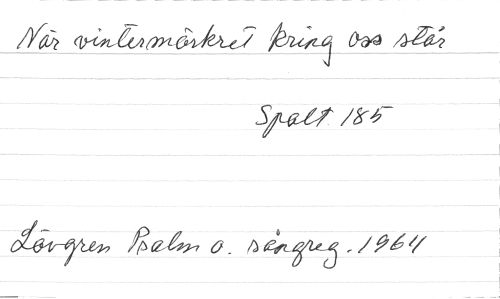 När vintermörkret kring oss står
Spalt 185
Lövgren Psalm o. sångreg. 1964